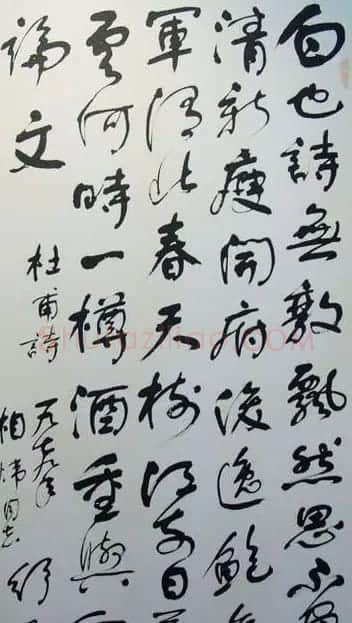 白也詩無敵飄然思不
清新庾開府俊逸鮑
軍渭北春天樹江東日
雲何時一樽酒重與
論文
杜甫詩
九七九年
同志